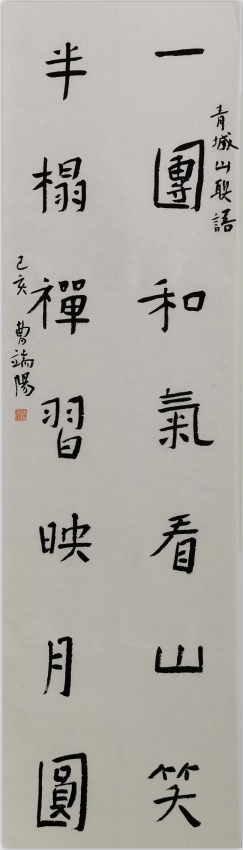 青城山聯語
一團和氣看山笑
半榻禪習映月圓
己亥 曹端陽